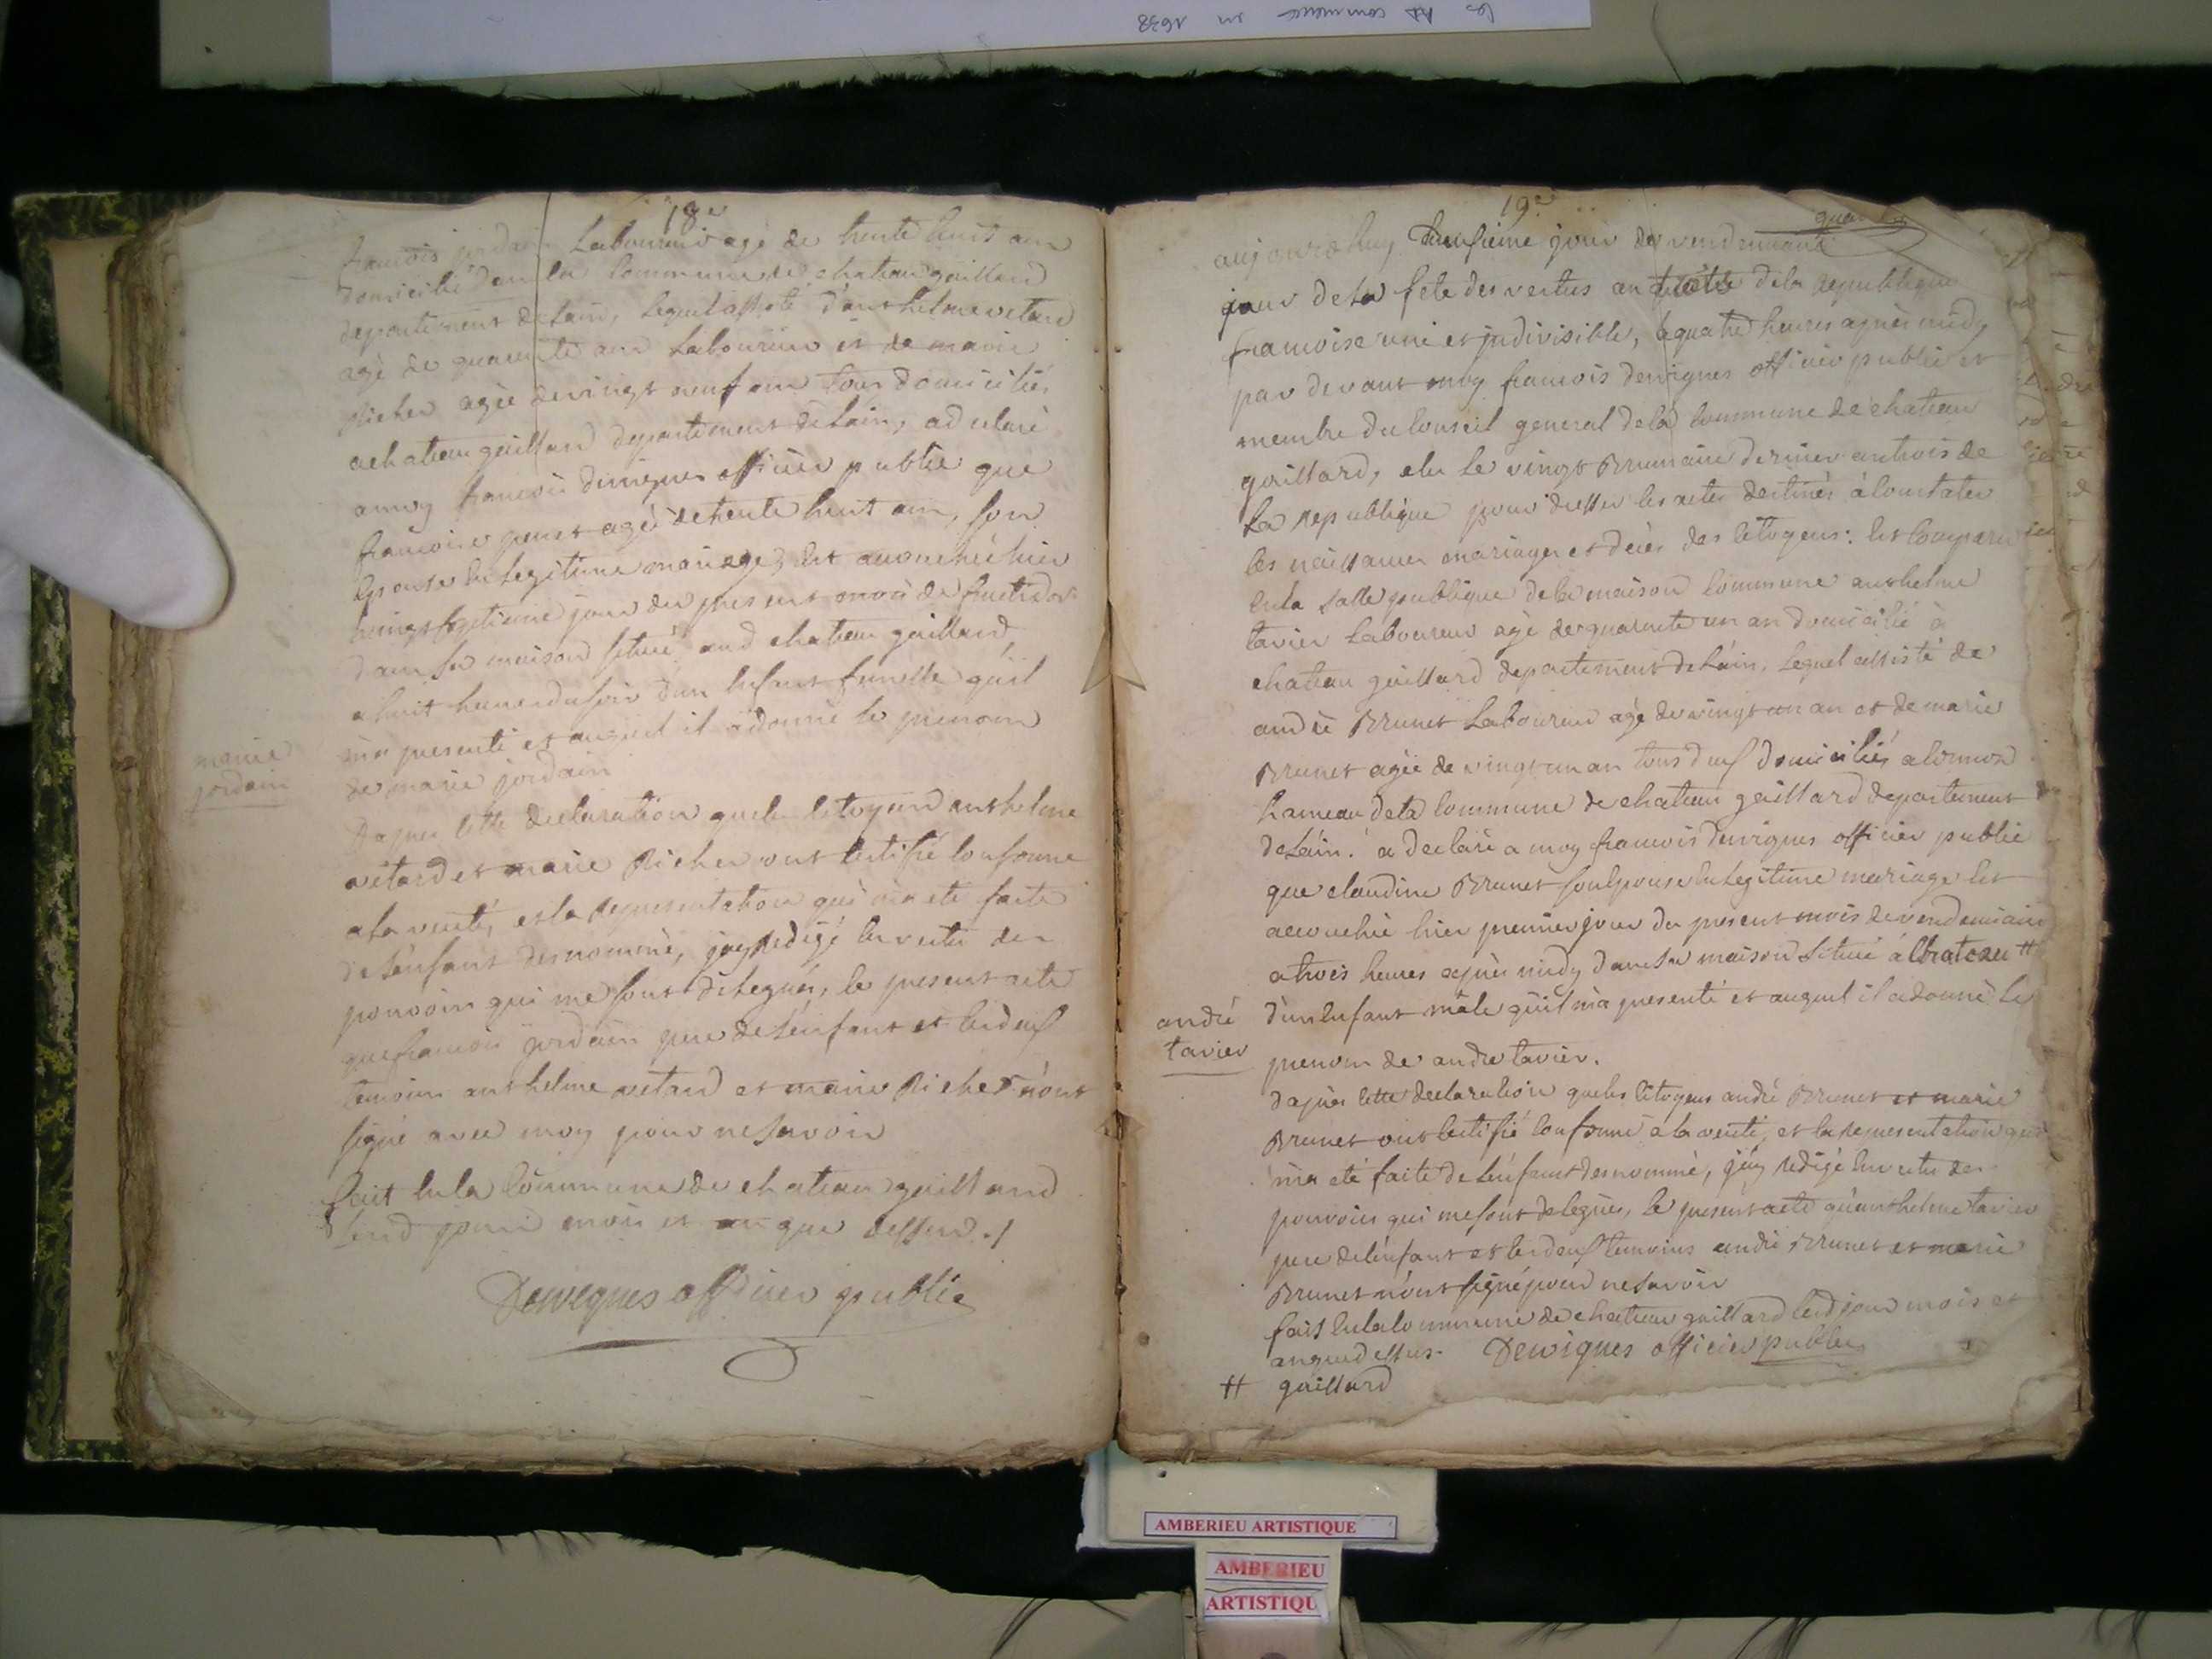 les commence en 1638
18e
francois jordain Laboureur agé de trente huit ans
domicilié dans la commune de chateau gaillard
departement de Lain, lequel assisté d'anthelme vetard
agé de quarente ans Laboureur et de marie
Richer agée de vingt neuf ans tous domiciliés
a chateau gaillard departement de Lain, a declaré
a moy francois dervignes officier public que
francoise agée de trente huit ans, son
Epouse En Legitime mariage, Est accouchée hier
vingt septieme jour du present mois de fructidor
dans sa maison située aud chateau gaillard
a huit heures du soir d'un Enfant femelle qúil
m'a presenté et auquel il a donné le prenom
de marie jordain
marie
jordain
D'apres Cette declaration que les Citoyens anthelme
vetard et marie Richer ont Certifié Conforme
a la verité, et la Representation qui m'a eté faite
de L'enfant denommé, jay Redigé En vertu des
pouvoirs qui me sont delegués, le present acte
que francois jordain pere de L'enfant et les deux
temoins anthelme vetard et marie Richer n'ont
signé avec moy pour ne savoir
fait En la Commune de chateau gaillard
Les d jour mois et an que dessus ./
Dervignes officier public
19e
aujourdhuy jour de vendemiaire
jour de la fete des vertus an de la Republique
francoise une et indivisible, a quatre heures apres midy
par devant moy francois dervignes officier public et
membre du Conseil general de la Commune de chateau
gaillard, elu le vingt Brumaire dernier an trois de
La Republique pour dresser les actes destinés à Constater
les naissances mariages et décés des Citoyens: Est Comparu
En la salle publique de la maison Commune anthelme
tavier Laboureur agé de quarente un an domicilié à
chateau gaillard departement de L'ain. Lequel assisté de
andré Brunet Laboureur agé de vingt un an et de marie
Brunet agée de vingt un an tous deux domiciliés a
hameau de la Commune de chateau gaillard departement
de L'ain. a declaré a moy francois dervignes officier public
que claudine Brunet son Epouse En Legitime mariage Est
accouchée hier premier jour du present mois de vendemiaire
a trois heures apres midy dans sa maison située à Chateau #
d'un Enfant mâle qúil m'a presenté et auquel il a donné le
prenom de andre tavier.
andré
tavier
d'apres Cette declaration que les Citoyens andré Brunet et marie
Brunet ont Certifié Conforme a la verité, et la Representation qui
m'a eté faite de L'enfant denommé, j'ay Redigé En vertu des
pouvoirs qui me sont delegués, le present acte qu'anthelme tavier
pere de L'enfant et les deux temoins andré Brunet et marie
Brunet n'ont signé pour ne savoir
fait En la Commune de chateau gaillard Lesd jour mois et
an que dessus. Dervignes officier public
# gaillard
AMBERIEU ARTISTIQUE
AMBERIEU
ARTISTIQU